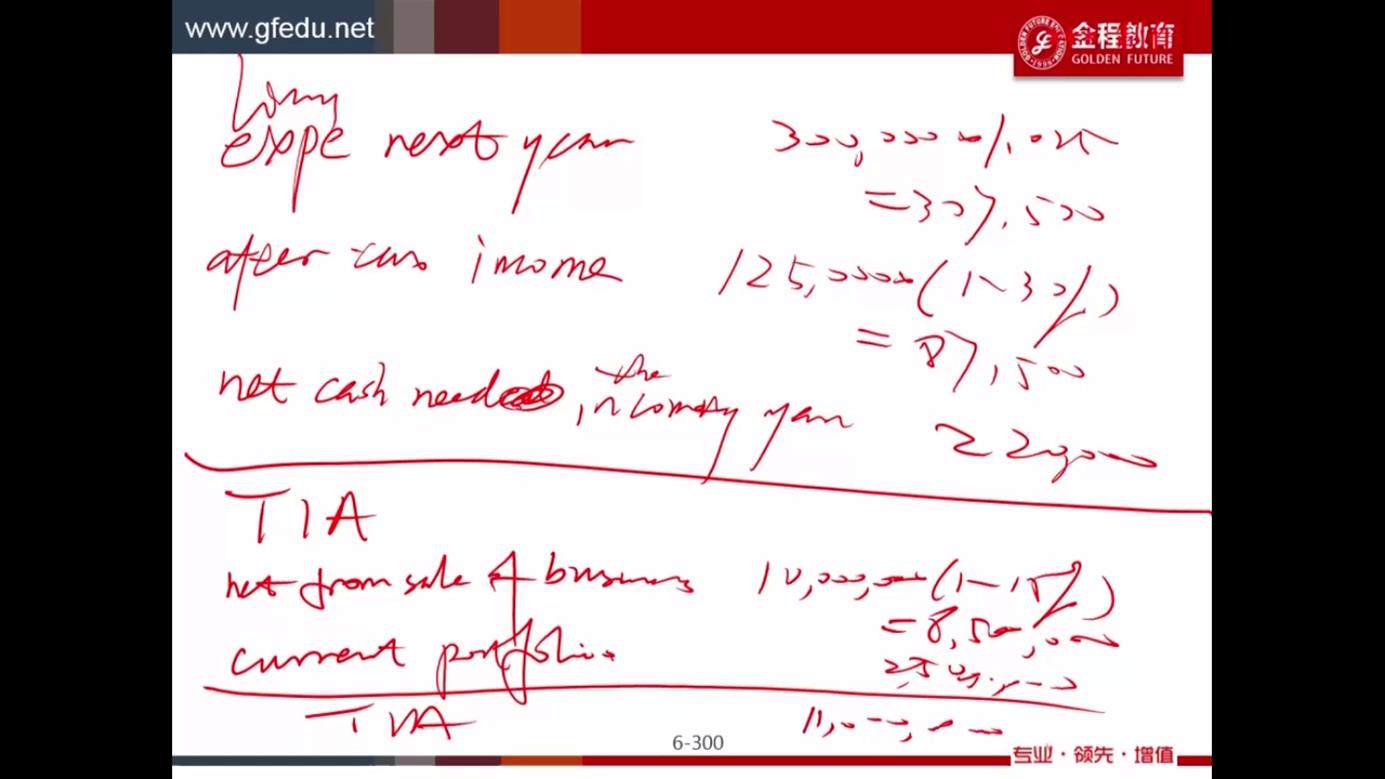 www.gfedu.net
金程教育
GOLDEN FUTURE
living
expe next year 300,000 × 1.025
= 307,500
after tax income 125,000 (1-30%)
= 87,500
net cash need in the coming year 220,000
TIA
net from sale of business 10,000,000 (1-15%)
= 8,500,000
current portfolio 2,500,000
TIA 11,000,000
6-300
专业·领先·增值